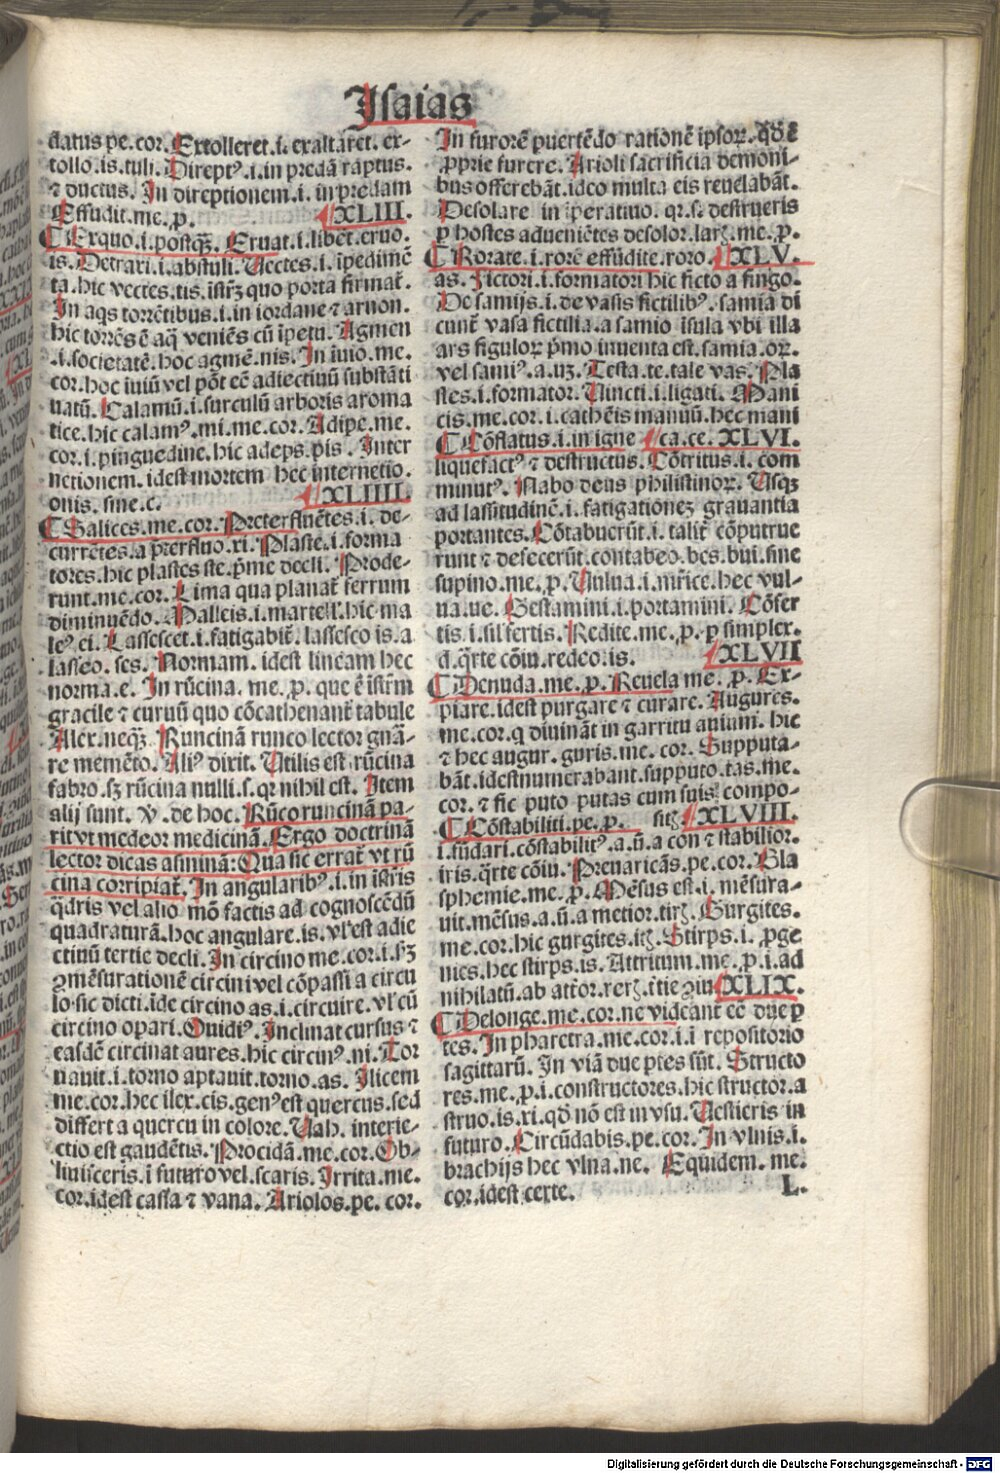 Isaias
flatus pe. cor. Extolleret. i. exaltaret. ex-
tollo. is. tuli. Direptꝰ. i. in predã raptus.
⁊ ductus. In direptionem. i. in predam
Effudit. me. p. XLIII.
Exquo. i. postqȝ. Eruat. i. liberet. eruo.
is. Detraxi. i. abstuli. Uectes. i. ĩpedimẽ
ta. hic vectes. tis. ĩstrȝ quo porta firmat̃.
In aqs torrẽtibus. i. in iordane ⁊ arnon.
hic torrẽs ẽ aq̃ veniẽs cũ ĩpetu. Agmen
.i. societatẽ. hoc agmẽ. nis. In iuio. me.
cor. hoc iuiũ vel põt eẽ adiectiuũ substãti
uatũ. Calamũ. i. surculũ arboris aroma
tice. hic calamꝰ. mi. me. cor. Adipe. me.
cor. i. pinguedine. hic adeps. pis. Inter
netionem. idest mortem hec internetio.
onis. sine. c. XLIIII.
Salices. me. cor. Preterfluẽtes. i. de-
currẽtes. a p̃terfluo. xi. Plaste. i. forma
tores. hic plastes ste. p̃me decli. Prode-
runt. me. cor. Lima qua planat̃ ferrum
diminuẽdo. Malleis. i. martell̃. hic ma
leꝰ ei. Lassescet. i. fatigabit̃. lassesco is. a
lasseo. ses. Normam. idest lineam hec
norma. e. In rũcina. me. p. que ẽ ĩstr̃m
gracile ⁊ curuũ quo cõcathenant̃ tabule
Alex. neqȝ. Runcinã runco lector gnã-
re memẽto. Aliꝰ dixit. Utilis est rũcina
fabro. sȝ rũcina nulli. s. qr nihil est. Item
alij sunt. v̾. de hoc. Rũco runcinã pa-
rit vt medeor medicinã. Ergo doctrinã
lector dicas asininã: Qua sic errat̃ vt rũ
cina corripiat̃. In angularibꝰ. i. in ĩstr̃is
q̃dris vel alio mõ factis ad cognoscẽdũ
quadraturã. hoc angulare. is. vl̃ est adie
ctiuũ tertie decli. In circino me. cor. i. sȝ
ꝯmẽsurationẽ circini vel cõpassi a circu
lo. sic dicti. ĩde circino as. i. circuire. vl̃ cũ
circino opari. Ouidiꝰ. Inclinat cursus ⁊
easdẽ circinat aures. hic circinꝰ. ni. Tor
nauit. i. torno aptauit. torno. as. Ilicem
me. cor. hec ilex. cis. genꝰ est quercus. sed
differt a quercu in colore. Uah. interie-
ctio est gaudẽtis. Procidã. me. cor. Ob-
liuisceris. ĩ futuro vel. scaris. Irrita. me.
cor. idest cassa ⁊ vana. Ariolos. pe. cor.
In furorẽ ꝯuertẽdo rationẽ ipsoꝝ. qđ ẽ
ꝓprie furere. Arioli sacrificia demoni-
bus offerebãt. ideo multa eis reuelabãt.
Desolare in ĩperatiuo. qr. s. destrueris
p hostes adueniẽtes desolor. larȝ. me. p.
Rorate. i. rorẽ effũdite. roro. XLV.
as. Fictori. i. formatori hic ficto a fingo.
De samijs. i. de vasis fictilibꝰ. samia di
cunt̃ vasa fictilia. a samio ĩsula vbi illa
ars figuloꝝ p̃mo inuenta est. samia. oꝝ.
vel samiꝰ. a. uȝ. Testa. te. tale vas. Pla
stes. i. formator. Uincti. i. ligati. Mani
cis. me. cor. i. cathẽis manuũ. hec mani
Cõflatus. i. in igne ca. ce. XLVI.
liquefactꝰ ⁊ destructus. Cõtritus. i. com
minutꝰ. Nabo deus philistinoꝝ. Usqȝ
ad lassitudinẽ. i. fatigationeȝ grauantia
portantes. Cõtabuerũt. i. talit̃ cõputrue
runt ⁊ defecerũt. contabeo. bes. bui. sine
supino. me. p. Uulua. i. mr̃ice. hec vul-
ua. ue. Gestamini. i. portamini. Cõfer
tis. i. sil̃ fertis. Redite. me. p. p simplex.
d. q̃rte cõiu. redeo. is. XLVII
Denuda. me. p. Reuela me. p. Ex-
piare. idest purgare ⁊ curare. Augures.
me. cor. q diuinãt in garritu auium. hic
⁊ hec augur. guris. me. cor. Supputa-
bãt. idest numerabant. supputo. tas. me.
cor. ⁊ sic puto putas cum suis compo-
Cõstabiliti. pe. p. sitȝ. XLVIII.
i. fũdati. cõstabilitꝰ. a. ũ. a con ⁊ stabilior.
iris. q̃rte cõiu. Preuaricãs. pe. cor. Bla
sphemie. me. p. Mẽsus est. i. mẽsura-
uit. mẽsus. a. ũ. a metior. tirȝ. Gurgites.
me. cor. hic gurgites. itȝ. Stirps. i. ꝓge
nies. hec stirps. is. Attritum. me. p. i. ad
nihilatũ. ab atteor. rerȝ. ĩ tie ꝯiu XLIX.
Delonge. me. cor. ne videant eẽ due p
tes. In pharetra. me. cor. i. i repositorio
sagittarũ. In viã due ptes sũt. Structo
res. me. p. i. constructores. hic structor. a
struo. is. xi. qđ nõ est in vsu. Uestieris in
futuro. Circũdabis. pe. cor. In vlnis. i.
brachijs hec vlna. ne. Equidem. me.
cor. idest certe. L.
Digitalisierung gefördert durch die Deutsche Forschungsgemeinschaft - DFG